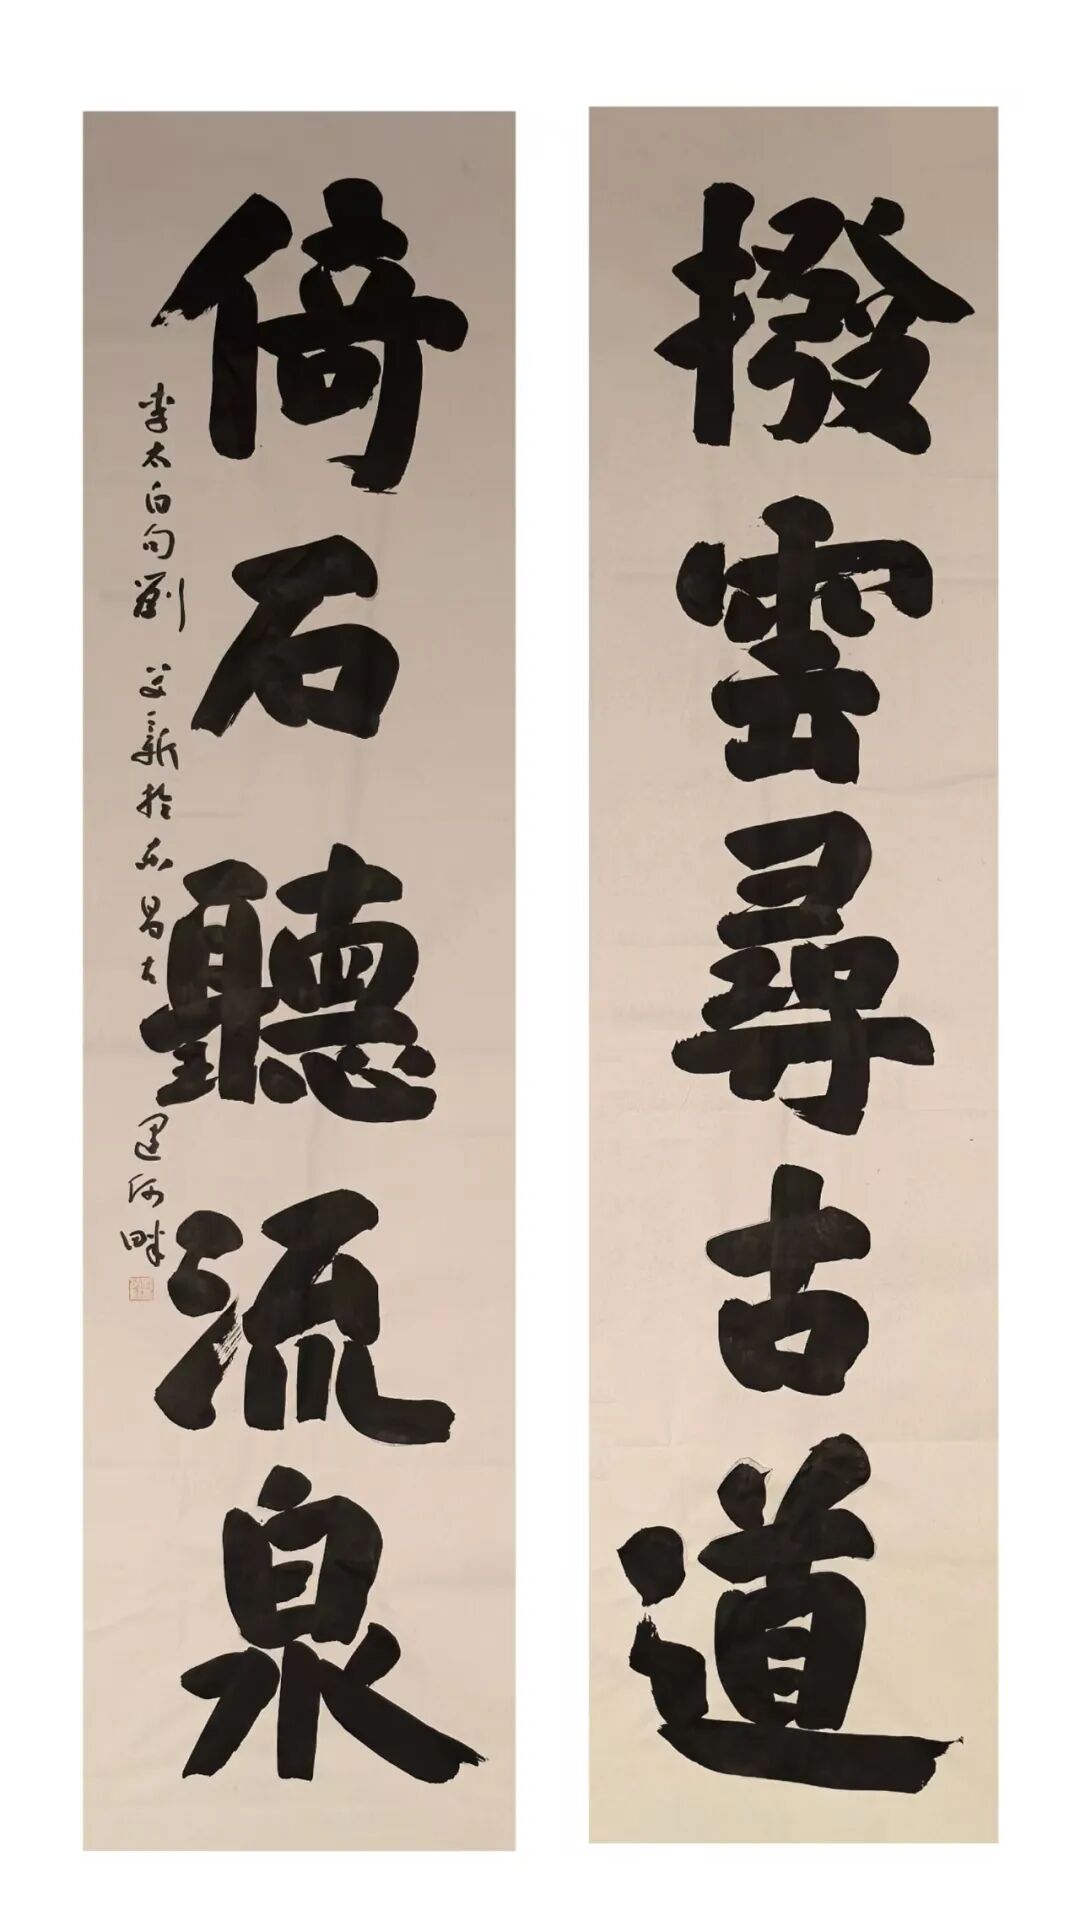 撥雲尋古道
倚石聽流泉
李太白句劉文新於東昌古運河畔